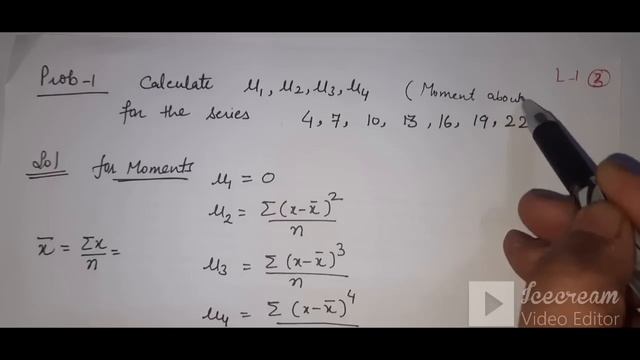 Prob-1 Calculate μ₁, μ₂, μ₃, μ₄ (Moment about L-1 ③
for the series 4, 7, 10, 13, 16, 19, 22
Sol for Moments μ₁ = 0
μ₂ = Σ(x-x̄)²/n
x̄ = Σx/n =
μ₃ = Σ(x-x̄)³/n
μ₄ = Σ(x-x̄)⁴
Icecream
Video Editor